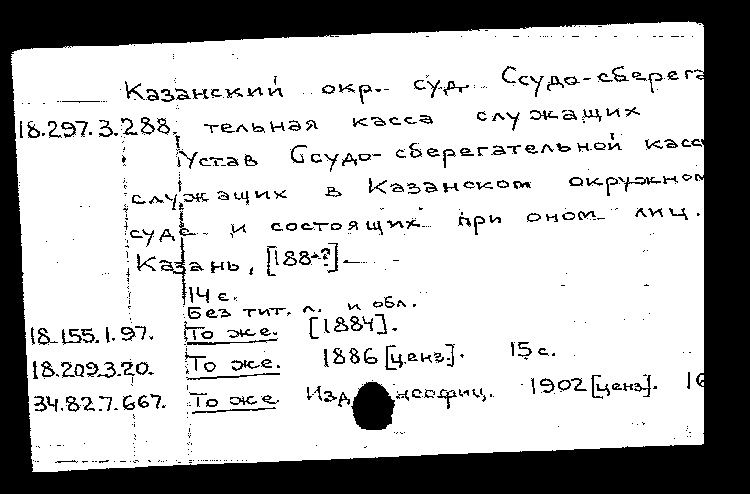 Казанский окр. суд. Ссудо-сберега
18.297.3.288. тельная касса служащих
Устав Ссудо-сберегательной касс
служащих в Казанском окружном
суде и состоящих при оном лиц.
Казань, [188-?].
14 с.
Без тит. л. и обл.
18.155.1.97. То же. [1884].
18.209.3.20. То же. 1886 [ценз]. 15 с.
34.82.7.667. То же Изд. 1902 [ценз]. 16